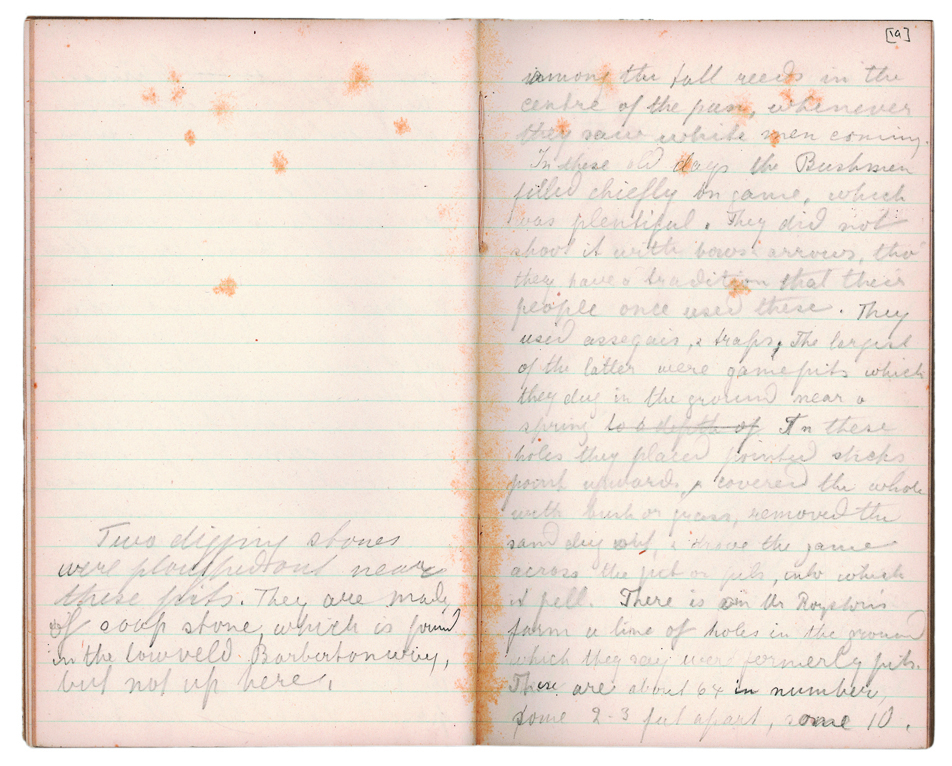 Two digging stones
were ploughed out near
these pits. They are made
of soap stone, which is found
in the lowveld. Barberton way,
but not up here.
[19]
among the tall reeds in the
centre of the pan, whenever
they saw white men coming.
In these old days the Bushmen
chiefly on game, which
was plentiful. They did not
shoot it with bows & arrows, tho'
they have a tradition that their
people once used these. They
used assegais, & traps. The largest
of the latter were game pits which
they dug in the ground near a
spring to a depth of In these
holes they placed pointed sticks
point upwards, & covered the whole
with bush or grass, removed the
sand dug out, & drove the game
across the pit or pits, into which
it fell. There is on Mr Royston's
farm a line of holes in the ground
which they say were formerly pits.
These are about 64 in number,
some 2-3 feet apart, some 10.